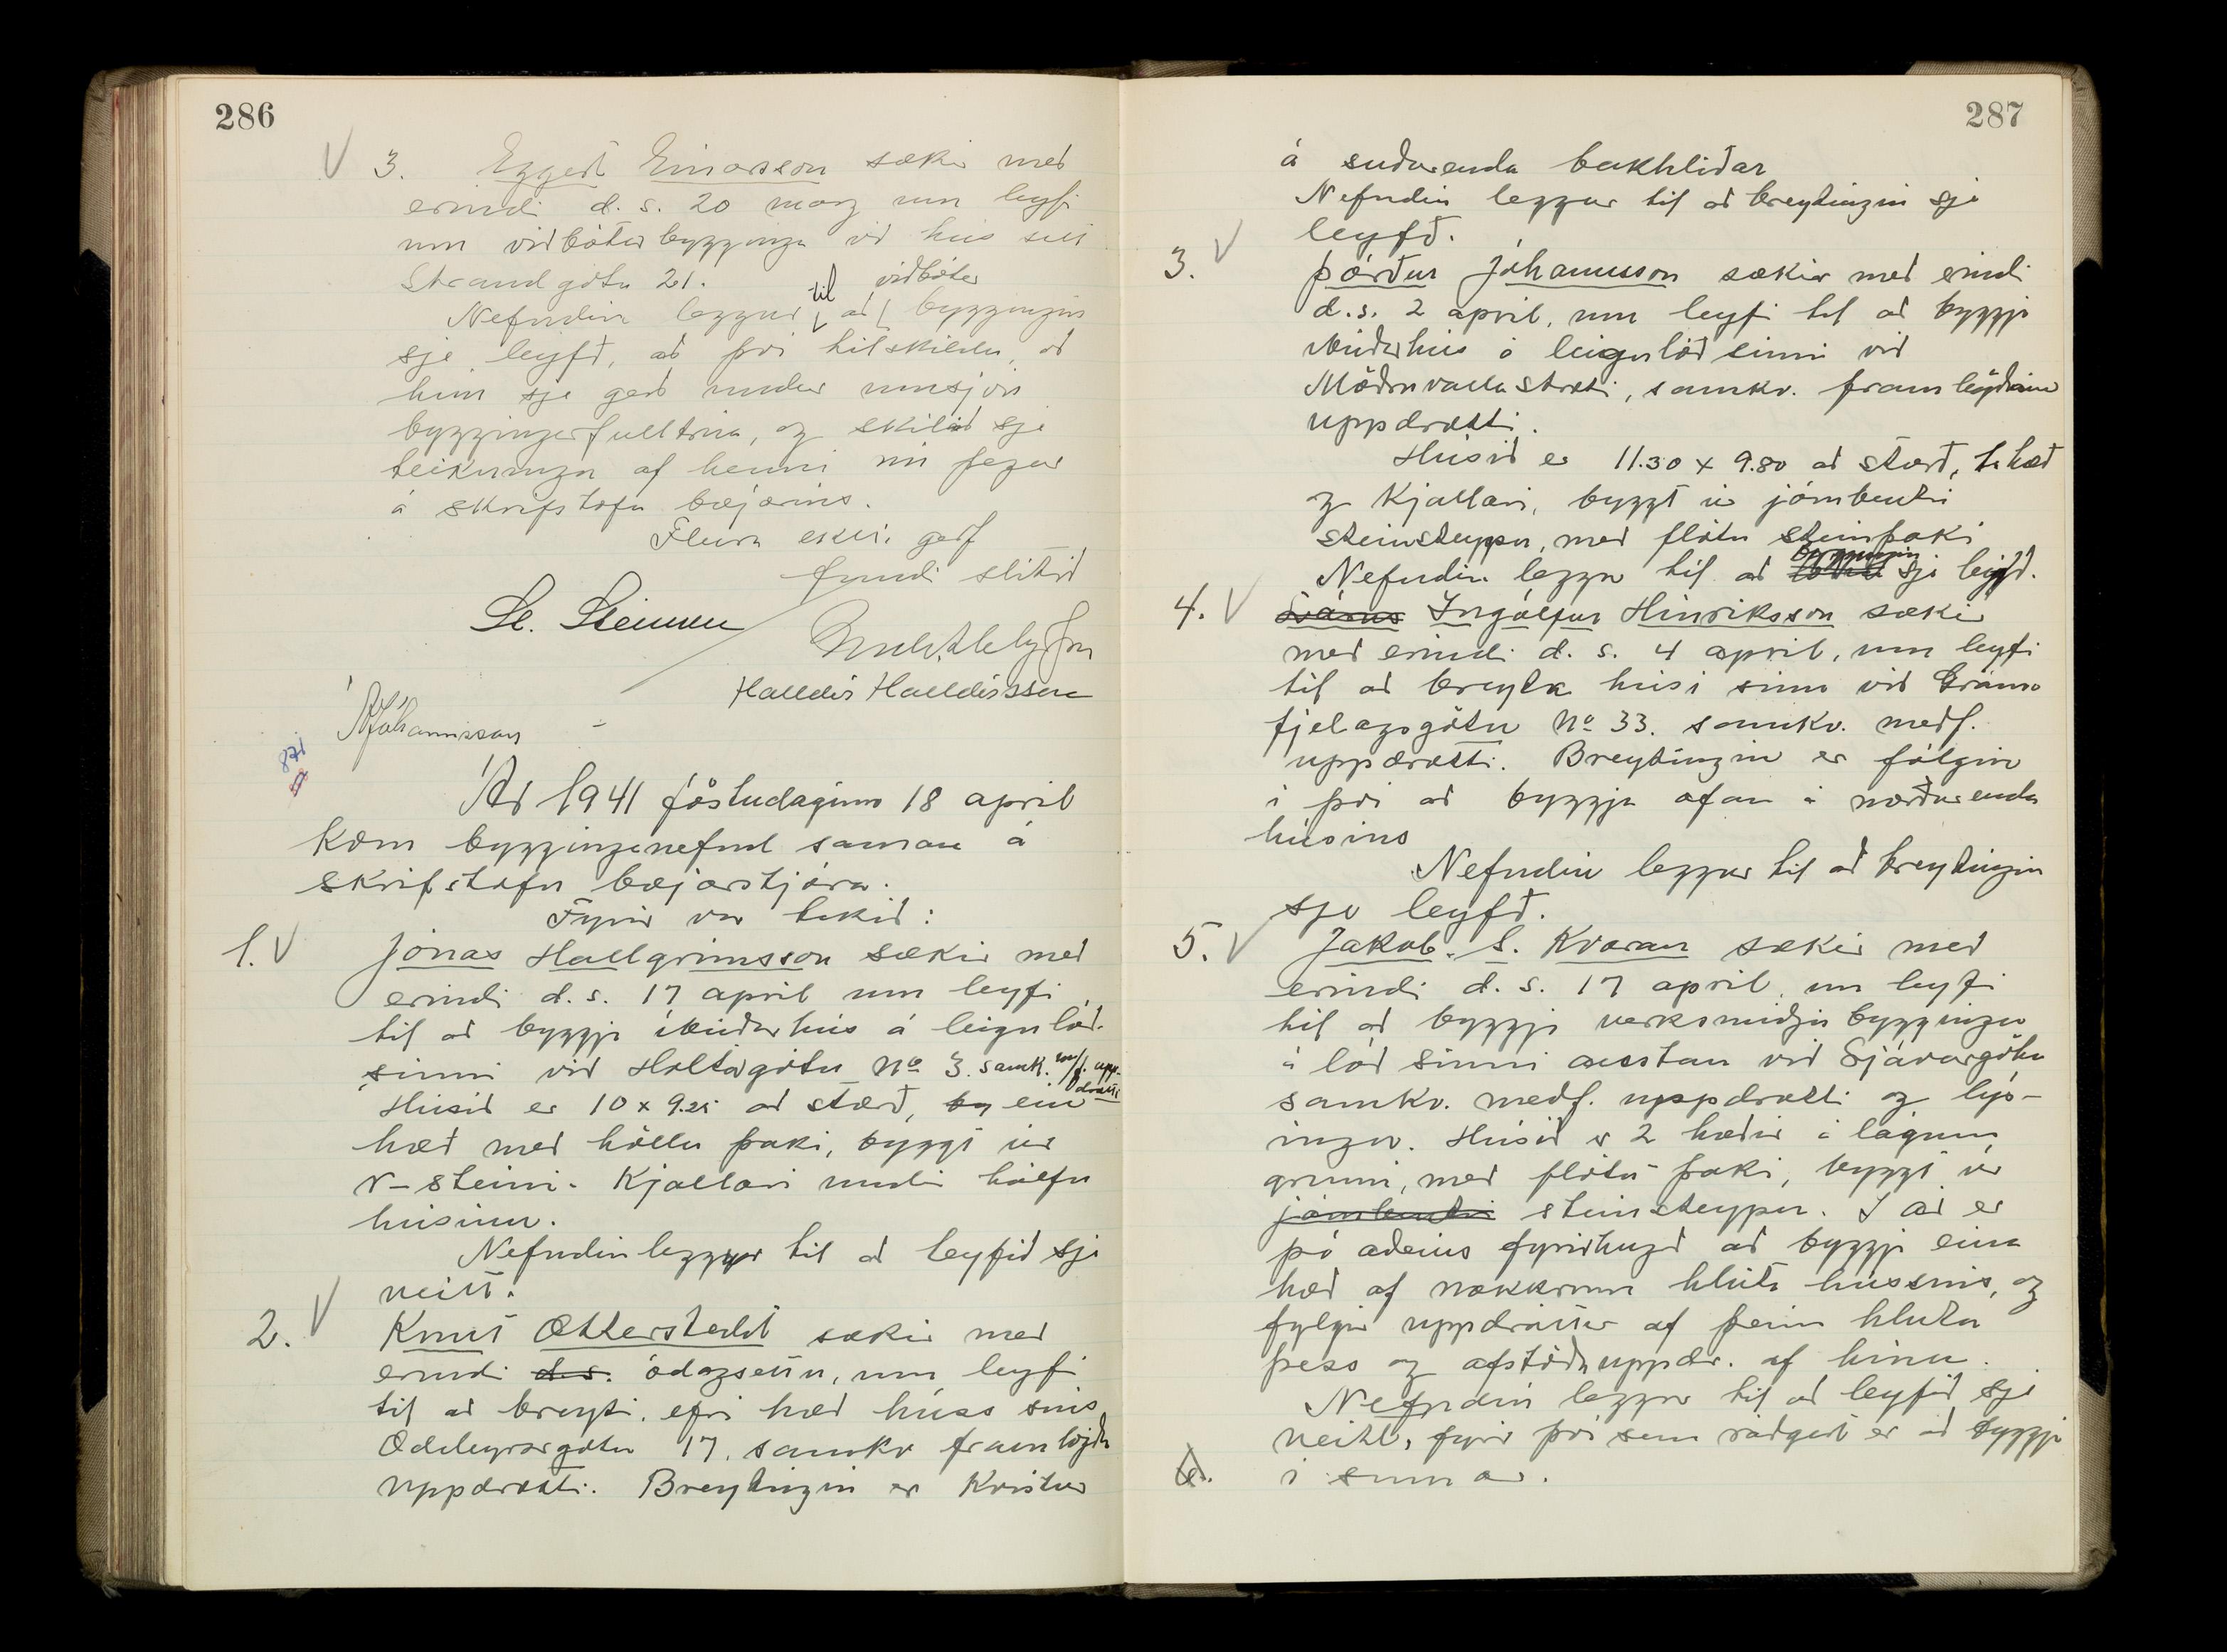 286
3. Eggert Einarsson sækir með
erindi d.s. 20 marz um leyfi
um viðbótarbyggingu við hús sitt
Strandgötu 21.
Nefndin leggur til að viðbótar byggingin
sje leyfð, að því tilskildu, að
hún sje gerð undir umsjón
byggingarfulltrúa, og skilað sje
teikningu af henni nú þegar
á skrifstofu bæjarins.
Fleira ekki gert
fundi slitið
St. Steinsen
Halldór Halldórsson
Jóhannsson
871
Ár 1941 föstudaginn 18 apríl
kom bygginganefnd saman á
skrifstofu bæjarstjóra.
Fyrir var tekið:
1. Jónas Hallgrímsson sækir með
erindi d.s. 17 apríl um leyfi
til að byggja íbúðarhús á leigulóð
sinni við Holtagötu No 3. samk. m/f. upp-
drætti
Húsið er 10 x 9.25 að stærð, by ein
hæð með höllu þaki, byggt úr
r-steini. Kjallari undir hálfu
húsinu.
Nefndin leggur til að leyfið sje
veitt.
2. Knut Otterstedt sækir með
erindi d.s. ódagsettu, um leyfi
til að breyta efri hæð húss síns
Oddeyrargötu 17, samkv framlögðu
uppdrætti. Breytingin er Kvistur
287
á suðurenda bakhliðar
Nefndin leggur til að breytingin sje
leyfð.
3. Þórður Jóhannsson sækir með erindi
d.s. 2 apríl, um leyfi til að byggja
íbúðarhús á leigulóð sinni við
Möðruvallastræti, samkv. framlögðum
uppdrætti.
Húsið er 11.30 x 9.80 að stærð, 1 hæð
og Kjallari, byggt úr járnbentri
steinsteypu, með flötu steinþaki
Nefndin leggur til að byggingin sje leyfð.
4. Ingólfur Hinriksson sækir
með erindi d.s. 4 apríl, um leyfi
til að breyta húsi sínu við Gránu
fjelagsgötu No 33. samkv. meðf.
uppdrætti. Breytingin er fólgin
í því að byggja ofan á norðurenda
húsins
Nefndin leggur til að breytingin
sje leyfð.
5. Jakob. S. Kvaran sækir með
erindi d.s. 17 apríl, um leyfi
til að byggja verksmiðju byggingu
á lóð sinni austan við Sjávargötu
samkv. meðf. uppdrætti og lýs-
ingu. Húsið er 2 hæðir á lágum
grunni, með flötu þaki, byggt úr
járnbentri steinsteypu. Í ár er
þó aðeins fyrirhugað að byggja eina
hæð af nokkrum hluta hússins, og
fylgir uppdráttur af þeim hluta
þess og afstöðuuppdr. af hinu.
Nefndin leggur til að leyfið sje
veitt, fyrir því sem ráðgert er að byggja
6. í sumar.